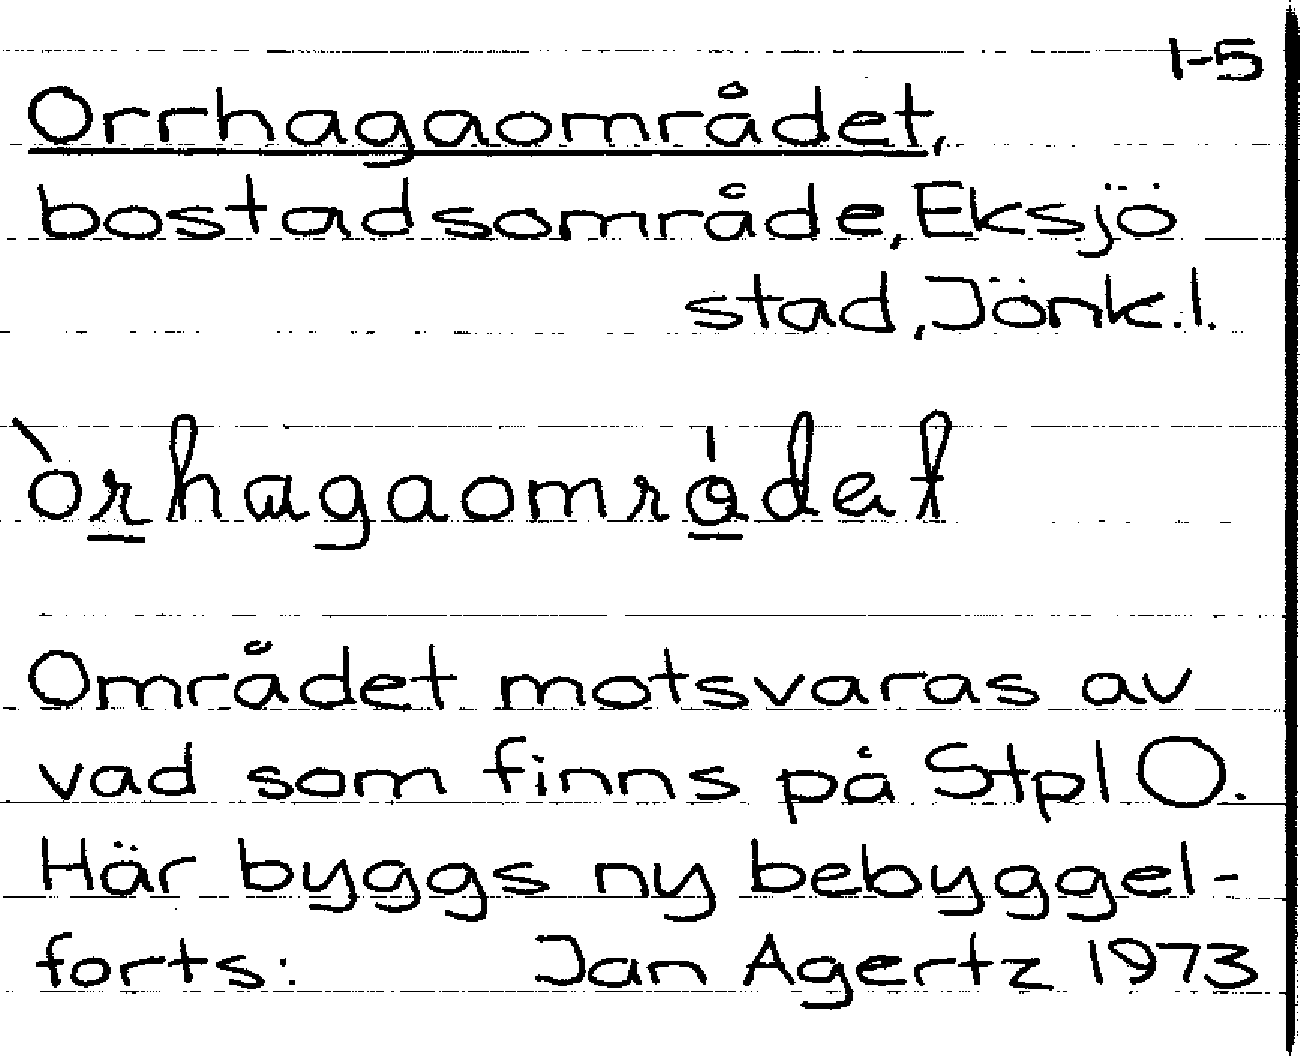 1-5
Orrhagaområdet,
bostadsområde, Eksjö
stad, Jönk.l.
òrhagaområ̍det
Området motsvaras av
vad som finns på Stpl O.
Här byggs ny bebyggel-
forts: Jan Agertz 1973